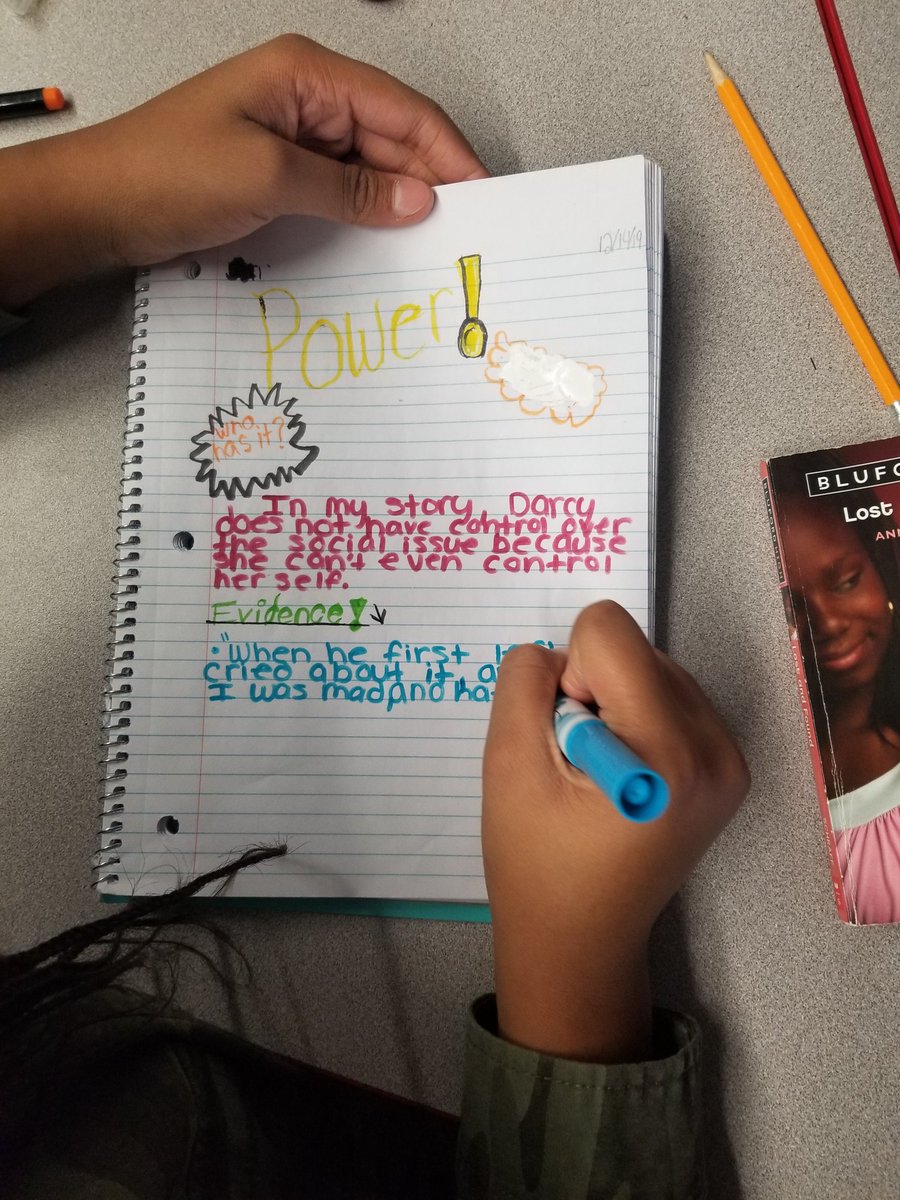 12/14/19
Power!
who
has it?
In my story, Darcy
does not have control over
the social issue because
she can't even control
her self.
Evidence!
• "When he first
cried about it,
I was mad, and
BLUFO
Lost
ANN